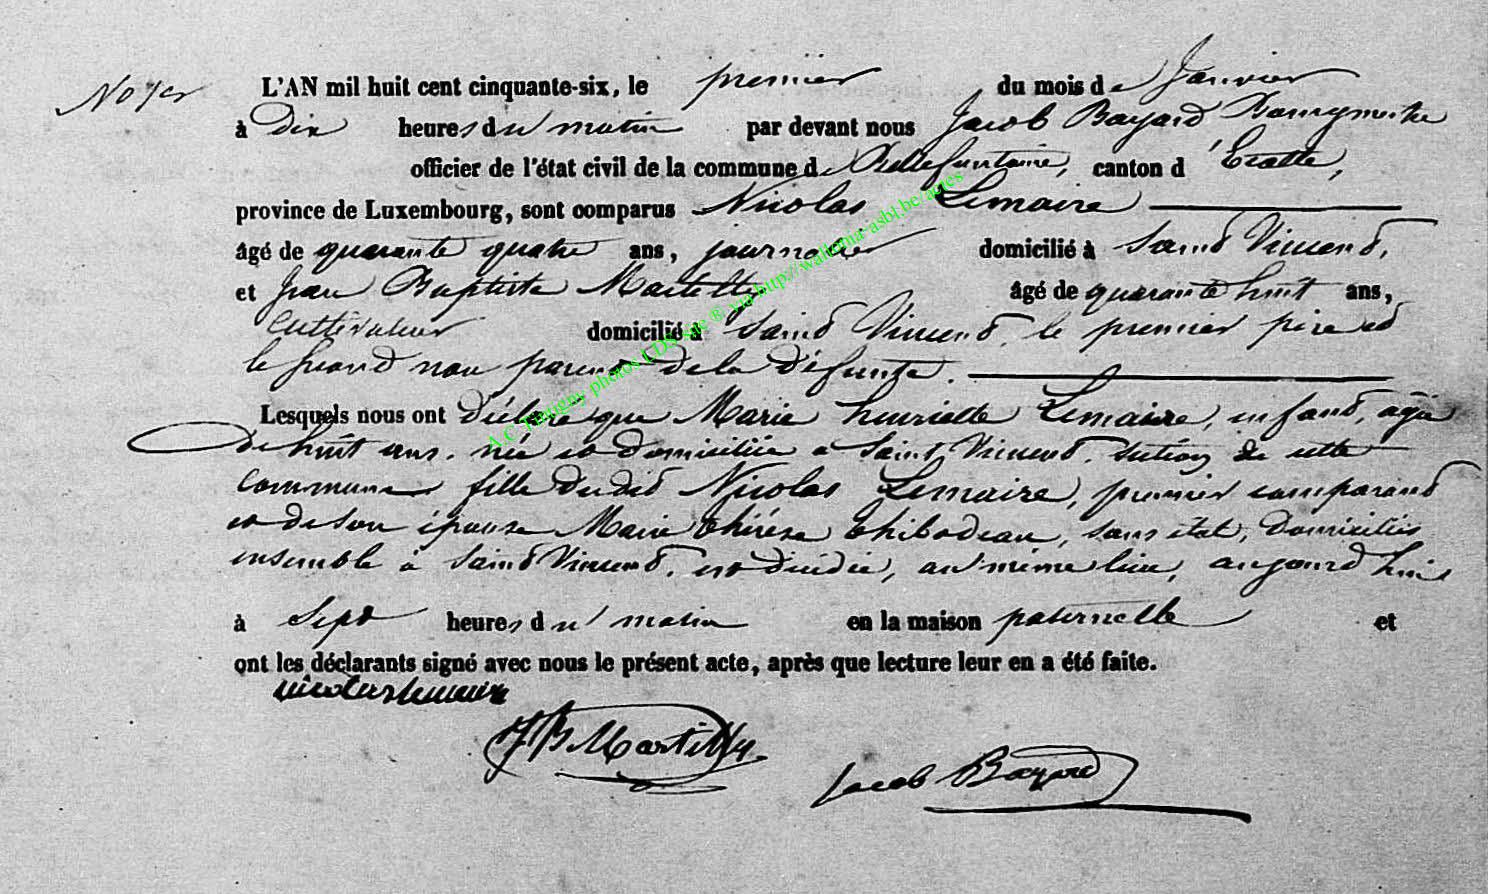 No 1er
L'AN mil huit cent cinquante-six, le premier du mois de Janvier
à Dix heures du matin par devant nous Jacob Bayard Bourgmestre
officier de l'état civil de la commune de Bellefontaine, canton d'Etalle,
province de Luxembourg, sont comparus Nicolas Lemaire
âgé de quarante quatre ans, journalier domicilié à Saint Vincent,
et Jean Baptiste Martilly âgé de quarante huit ans,
Cultivateur domicilié à Saint Vincent, le premier père et
le second non parent de la défunte.
Lesquels nous ont Déclaré que Marie henriette Lemaire, enfant, agée
De huit ans, née et domiciliée a Saint Vincent, section de cette
Commune fille dudit Nicolas Lemaire, premier comparant
et de son épouse Marie thérèse thibodeau, sans état, Domiciliés
ensemble à Saint Vincent, est décédée, au même lieu, aujourd hui
à Sept heures du matin en la maison paternelle et
ont les déclarants signé avec nous le présent acte, après que lecture leur en a été faite.
nicolas lemaire
J B Martilly.
Jacob Bayard
A.C Tintigny photos LDS site ® via http://wallonia-asbl.be/actes